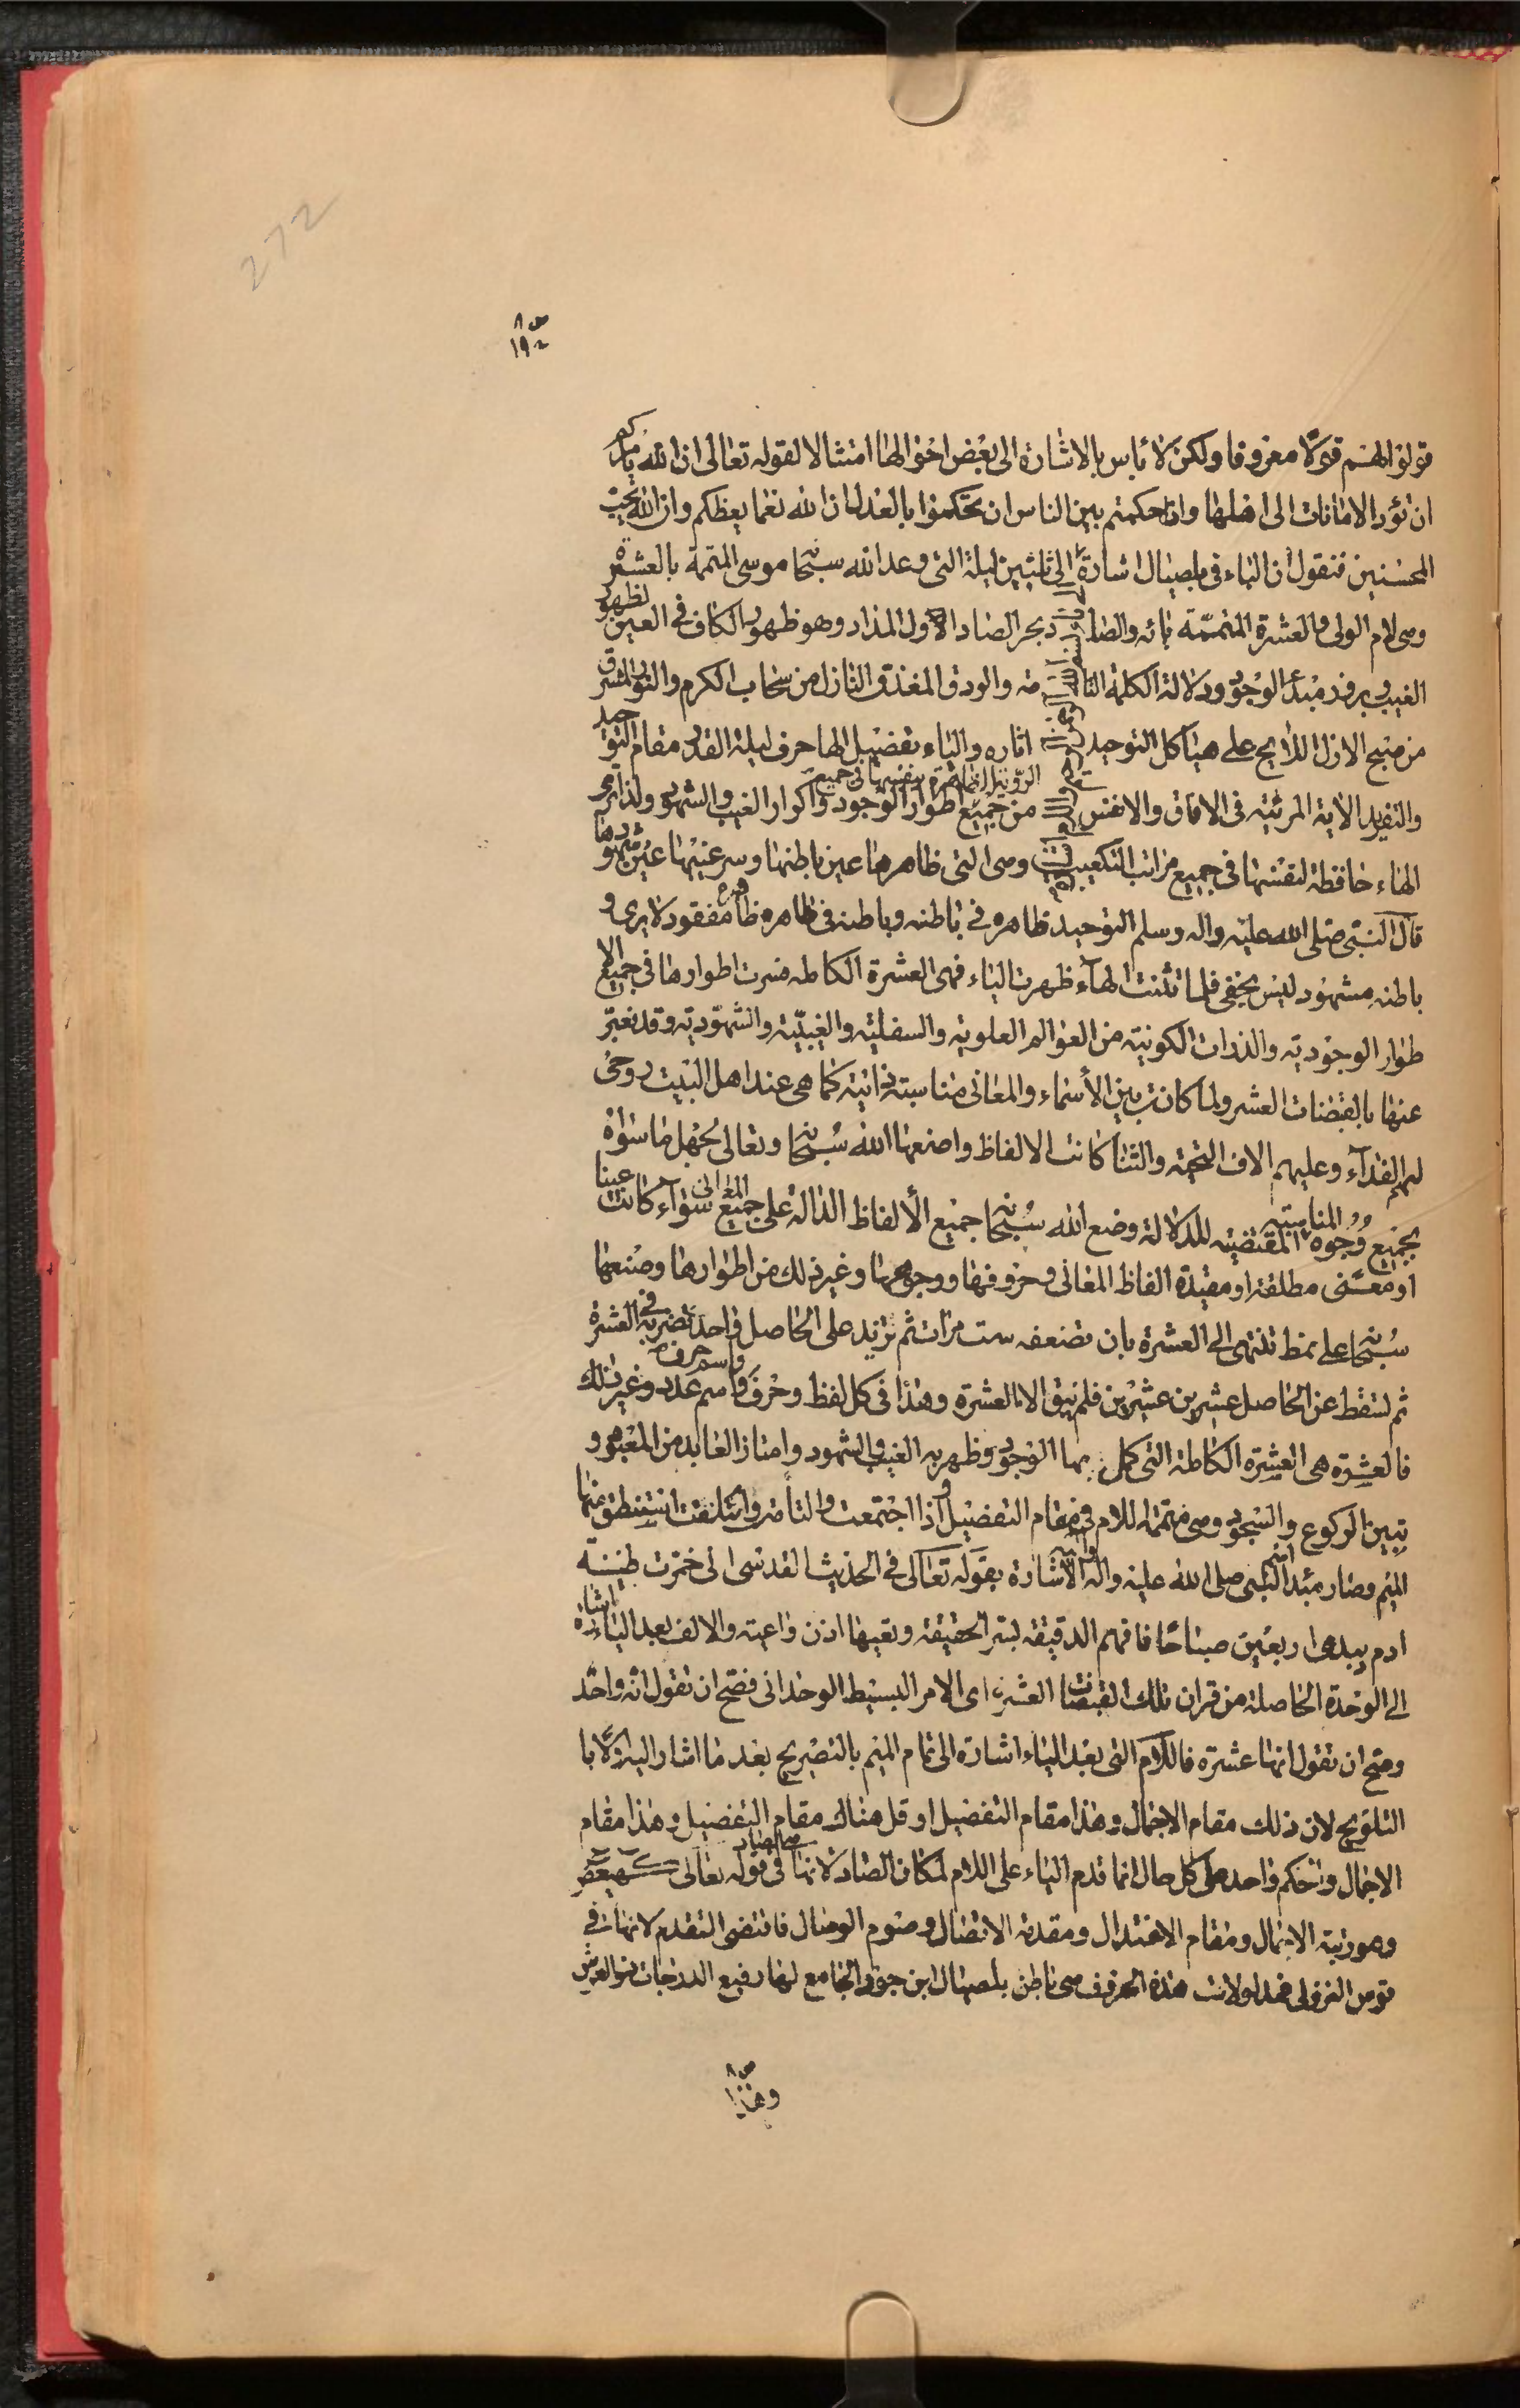 272
ص ٨
١٩٠
قولوا لهم قولا معروفا ولكن لا باس بالاشارة الى بعض احوالها امتثالا لقوله تعالى ان الله يامركم
ان تؤدوا الامانات الى اهلها واذا حكمتم بين الناس ان تحكموا بالعدل ان الله نعما يعظكم وان الله يحب
المحسنين فنقول ان الياء في بلصيال اشارة الى ثلثين ليلة التي وعد الله سبحانه موسى المتممة بالعشرة
وهي لام الولي والعشرة المتممة يائه والصاد بحر الصاد الاول المداد وهو ظهور الكاف في العين لظهور
الغيب وبروز مبدأ الوجود ودلالة الكلمة التامة والودق المغدق النازل من سحاب الكرم والنور المشرق
من صبح الازل اللايح على هياكل التوحيد اثاره والياء تفضيل الهاء حرف ليلة القدر مقام التوحيد
والتفريد الاية المرئية في الافاق والانفس من جميع اطوار الوجود واكوار الغيب والشهود ولذا ترى
الهاء حافظة لنفسها في جميع مراتب التكعيب وهي التي ظاهرها عين باطنها وسر غيبها عين شهودها
قال النبي صلى الله عليه واله وسلم التوحيد ظاهره في باطنه وباطنه في ظاهره ظاهره مفقود لا يرى و
باطنه مشهود ليس يخفى فلما تثنت الهاء ظهرت الياء فهي العشرة الكاملة فسرت اطوارها في جميع الا
طوار الوجودية والذرات الكونية من العوالم العلوية والسفلية والغيبية والشهودية وقد نعبر
عنها بالقبضات العشر ولما كانت بين الأسماء والمعاني مناسبة ذاتية كما هي عند اهل البيت روحي
لهم الفداء وعليهم الاف التحية والثنا كانت الالفاظ واضعها الله سبحانه وتعالى لجهل ما سواه
بجميع وجوه المناسبة المقتضية للدلالة وضع الله سبحانه جميع الألفاظ الدالة على جميع المعاني سواء كانت عينا
او معنى مطلقة او مقيدة الفاظ المعاني وحروفها ووجوهها وغير ذلك من اطوارها وصنعها
سبحانه على نمط تنتهي الى العشرة بان تضعفه ست مرات ثم تزيد على الحاصل واحدا تضربه في العشرة
ثم تسقط عن الحاصل عشرين عشرين فلم يبق الا العشرة وهذا في كل لفظ وحرف واسم حرف واسم عدد وغير ذلك
فالعشرة هي العشرة الكاملة التي كمل بها الوجود وظهر به الغيب والشهود وامتاز العابد من المعبود و
تبين الركوع والسجود وهي متممة للام في مقام التفضيل واذا اجتمعت والتأمت وائتلفت استنطق منها
الميم وصار مبدأ اسم النبي صلى الله عليه واله واليه الاشارة بقوله تعالى في الحديث القدسي اني خمرت طينة
ادم بيدي اربعين صباحا فافهم الدقيقة لسر الحقيقة وتعيها اذن واعية والالف بعد الياء اشارة
الى الوحدة الحاصلة من قران تلك القبضات العشر اى الامر البسيط الوحداني فصح ان تقول انه واحد
وصح ان تقول انها عشرة فاللام التي بعد الياء اشارة الى تمام الميم بالتصريح بعد ما اشار اليه اولا با
التلويح لان ذلك مقام الاجمال وهذا مقام التفصيل او قل هناك مقام التفضيل وهذا مقام
الاجمال والحكم واحد على كل حال انما قدم الياء على اللام لمكان الصاد لانها هي الصاد في قوله تعالى كهيعص
وهو رتبة الاجمال ومقام الاعتدال ومقدمة الاتصال وصوم الوصال فاقتضى التقدم لانها في
قوس النزولي فمدلولات هذه الحروف هي باطن بلصيال ابن جور الجامع لها رفيع الدرجات ذو العرش
ص ٨
وهذا